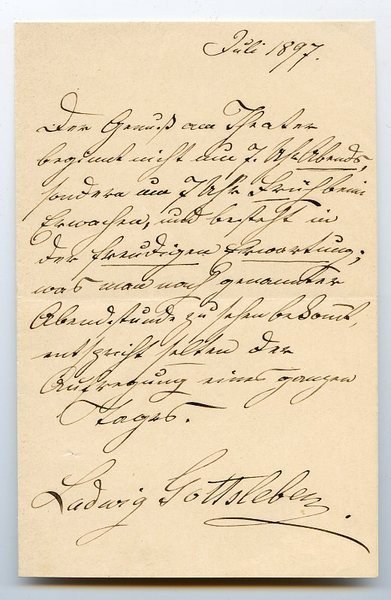 Juli 1897.
Der Genuß am Theater
beginnt nicht um 7. Uhr Abends,
sondern um 7 Uhr Früh beim
Erwachen, und besteht in
der freudigen Erwartung;
was man nach genannter
Abendstunde zu sehen bekommt,
entspricht selten der
Aufregung eines ganzen
Tages.
Ludwig Gottsleben.